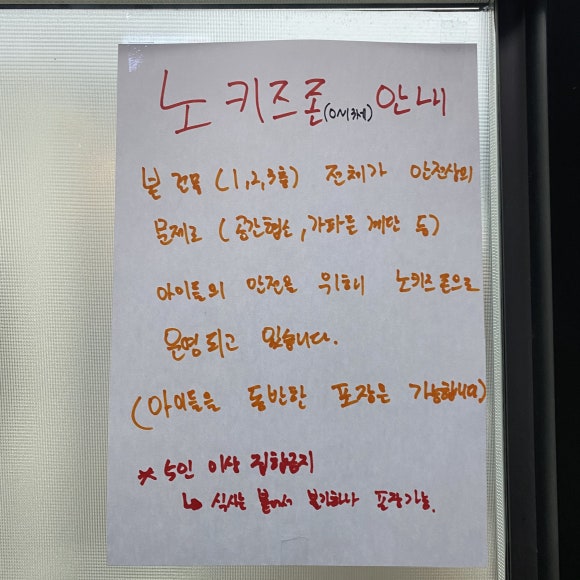 노키즈존(0세~13세) 안내
본 건물 (1,2,3층) 전체가 안전상의
문제로 (공간협소, 가파른 계단 등)
아이들의 안전을 위해 노키즈존으로
운영되고 있습니다.
(아이들을 동반한 포장은 가능합니다)
* 5인 이상 집합금지
↳ 식사는 불가하나 포장가능.